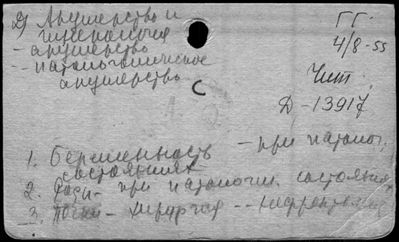 2) Акушерство и
гинекология
- акушерство
- патологическое
акушерство
ГГ.
4/8-55
Чит.
Д-13917
С
1. Беременность - при патолог.
состояниях
2. Роды - при патологич. состояния
3. Почки - хирургия -- нефрэктомия